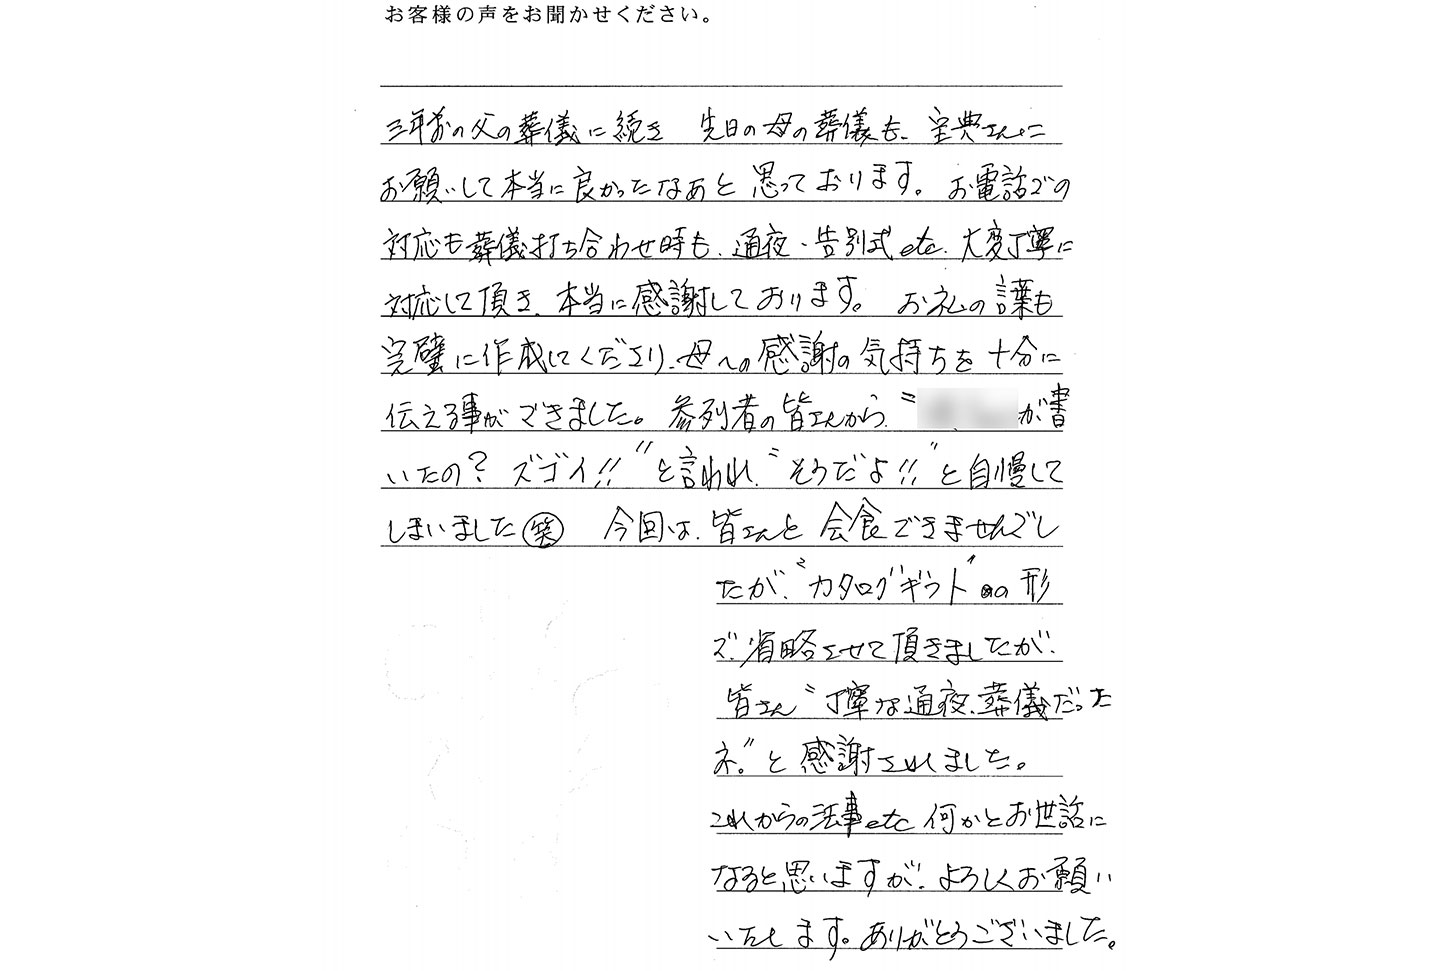 お客様の声をお聞かせください。
三年前の父の葬儀に続き 先日の母の葬儀も、宝典さんに
お願いして本当に良かったなあと思っております。お電話での
対応も葬儀打ち合わせ時も、通夜・告別式etc.大変丁寧に
対応して頂き、本当に感謝しております。お礼の言葉も
完璧に作成してくださり、母への感謝の気持ちを十分に
伝える事ができました。参列者の皆さんから、〝 が書
いたの？ズゴイ!!〟と言われ、〝そうだよ!!〟と自慢して
しまいました㊗笑 今回は、皆さんと会食できませんでし
たが、〝カタログギフト〟の形
で、省略させて頂きましたが、
皆さん〝丁寧な通夜、葬儀だった
ネ。〟と感謝されました。
これからの法事etc何かとお世話に
なると思いますが、よろしくお願い
いたします。ありがとうございました。